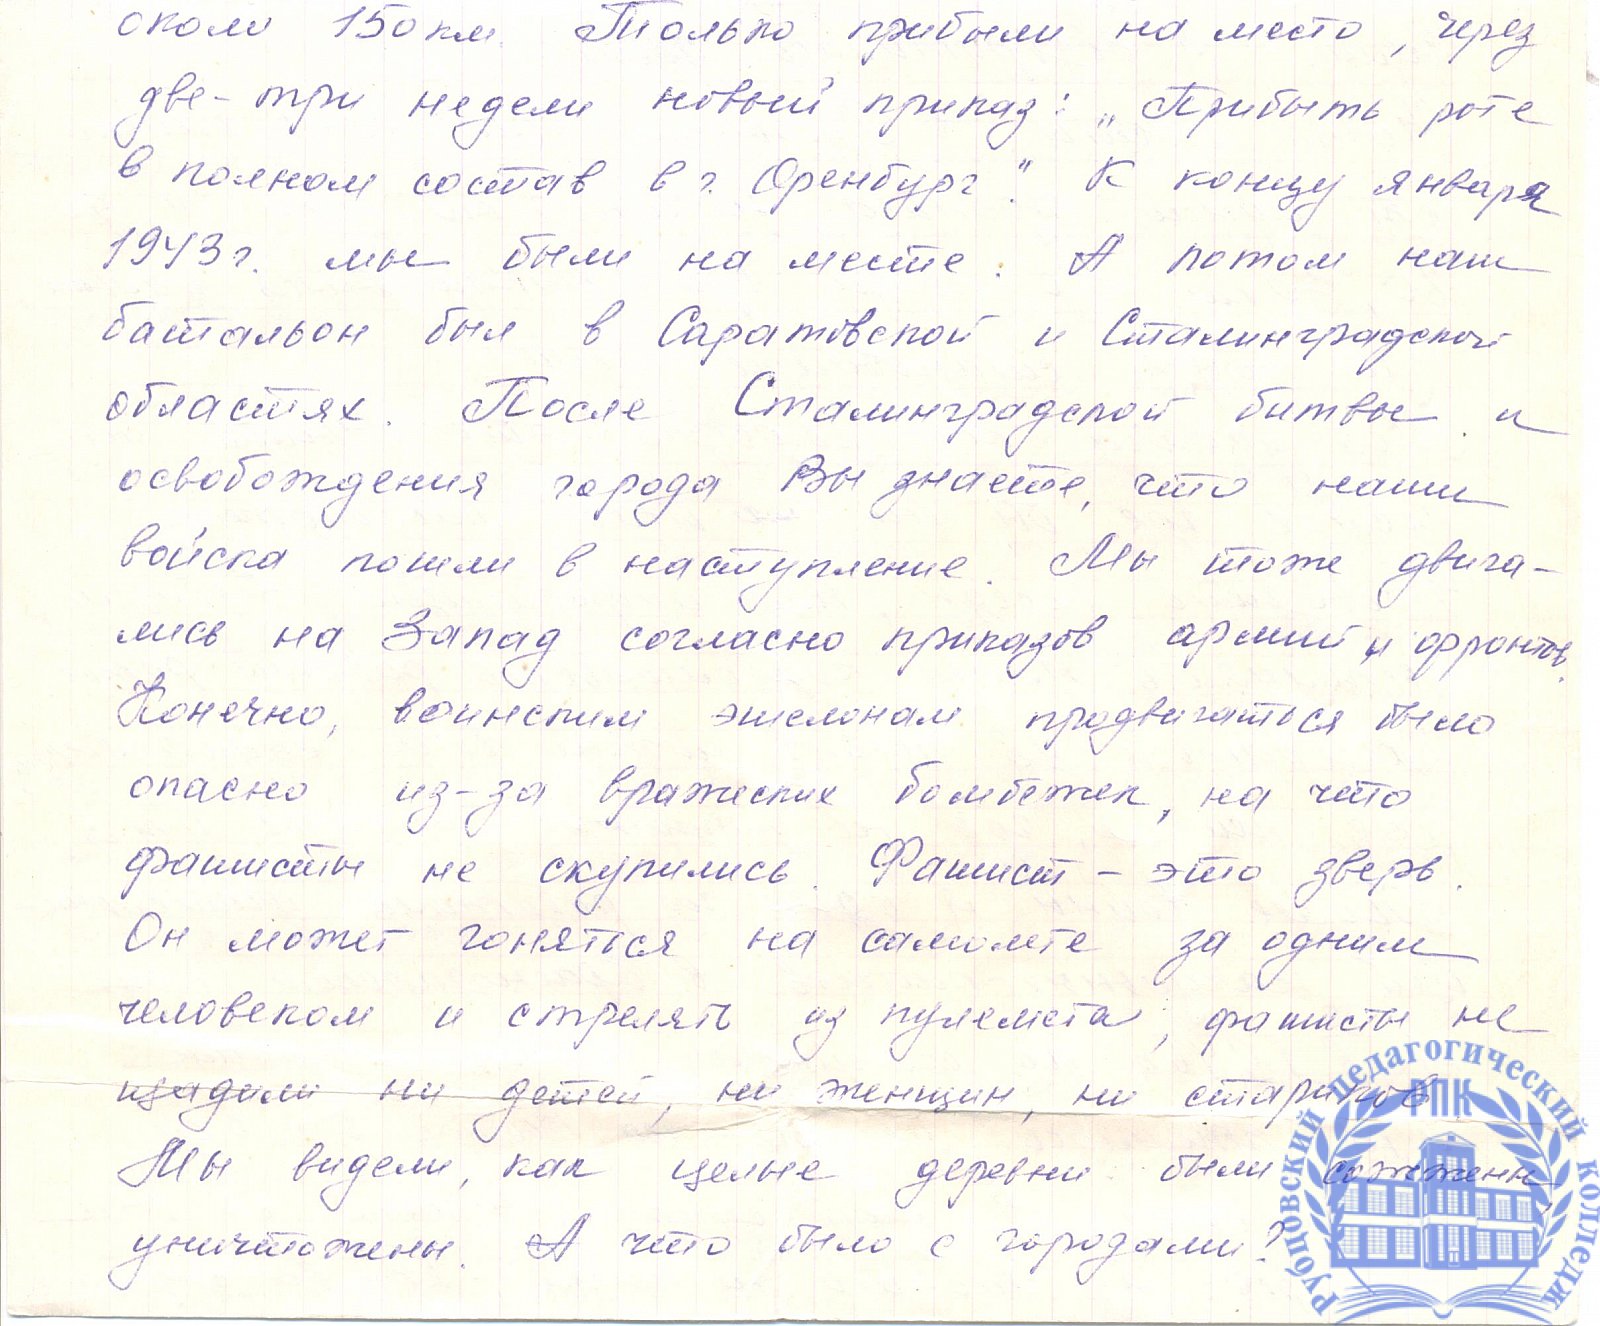 около 150 км. Только прибыли на место, через
две-три недели новый приказ: „Прибыть роте
в полном состав в г. Оренбург". К концу января
1943 г. мы были на месте. А потом наш
батальон был в Саратовской и Сталинградской
областях. После Сталинградской битвы и
освобождения города Вы знаете, что наши
войска пошли в наступление. Мы тоже двига-
лись на Запад согласно приказов армий и фронтов.
Конечно, воинским эшелонам продвигаться было
опасно из-за вражеских бомбежек, на что
фашисты не скупились. Фашист – это зверь.
Он может гоняться на самолете за одним
человеком и стрелять из пулемета, фашисты не
щадили ни детей, ни женщин, ни стариков
Мы видели, как целые деревни были сожжены,
уничтожены. А что было с городами?
Рубцовский педагогический колледж
РПК